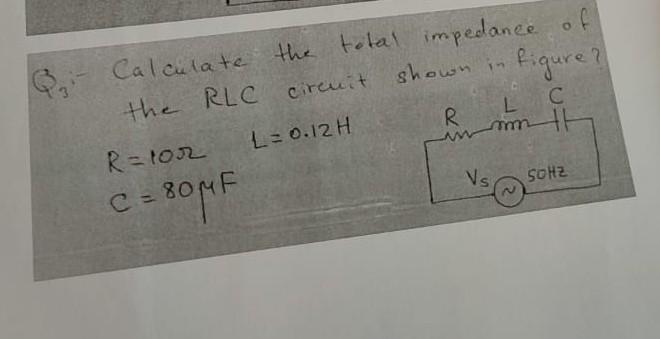 Q3:- Calculate the total impedance of
the RLC circuit shown in figure?
R = 10Ω L = 0.12H
C = 80μF
R L C
Vs ~ 50HZ